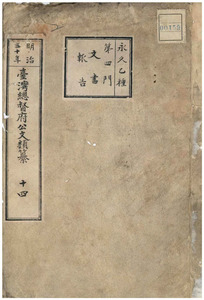 永久乙種
第四門
文書
報告
明治
三十年
臺灣總督府公文類纂
十四